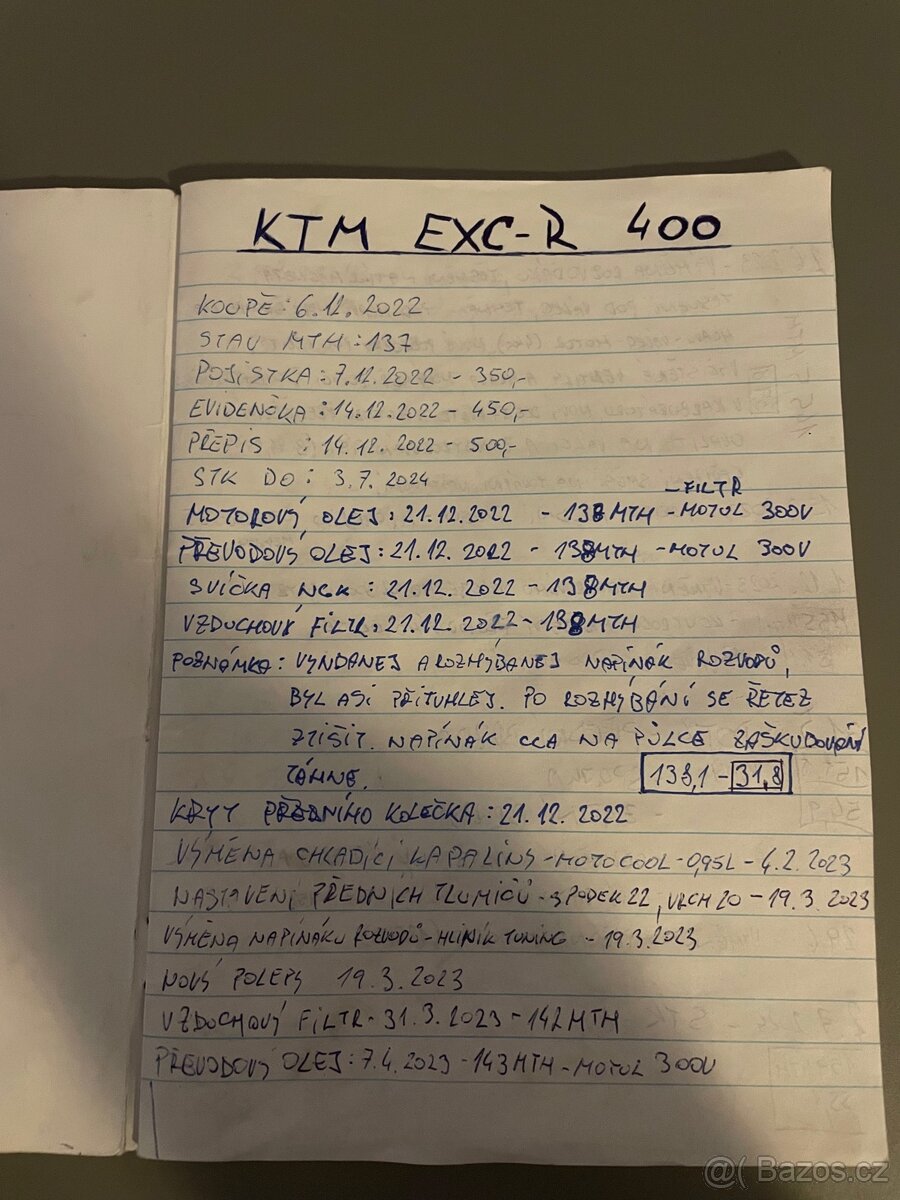 KTM EXC-R 400
KOUPĚ: 6.12.2022
STAV MTH: 137
POJISTKA: 7.12.2022 - 350,-
EVIDENČKA: 14.12.2022 - 450,-
PŘEPIS : 14.12.2022 - 500,-
STK DO: 3.7.2024
- FILTR
MOTOROVÝ OLEJ: 21.12.2022 - 138 MTH - MOTUL 300V
PŘEVODOVÝ OLEJ: 21.12.2022 - 138MTH - MOTUL 300V
SVÍČKA NGK: 21.12.2022 - 138MTH
VZDUCHOVÝ FILTR: 21.12.2022 - 138MTH
POZNÁMKA: VYNDANEJ A ROZHÝBANEJ NAPÍNÁK ROZVODŮ,
BYL ASI PŘITUHLEJ. PO ROZHÝBÁNÍ SE ŘETEZ
ZTIŠIT. NAPÍNÁK CCA NA PŮLCE
TÁHNE. 138,1 - 31,8
KRYT PŘEDNÍHO KOLEČKA: 21.12.2022
VÝMĚNA CHLADÍCÍ KAPALINY - MOTOCOOL - 0,95L - 4.2.2023
NASTAVENÍ PŘEDNÍCH TLUMIČŮ - SPODEK 22, VRCH 20 - 19.3.2023
VÝMĚNA NAPÍNÁKU ROZVODŮ - HLINÍK TUNING - 19.3.2023
NOVÝ POLEPY 19.3.2023
VZDUCHOVÝ FILTR - 31.3.2023 - 142MTH
PŘEVODOVÝ OLEJ: 7.4.2023 - 143MTH - MOTUL 300V
@( Bazos.cz